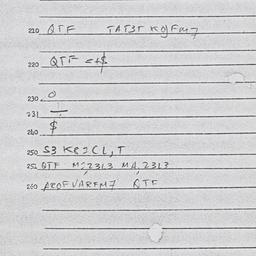 210 QTF TAT3T KOFM7
220 QTF =+$
230 0
231
240 $
250 S3 KR=CL,T
252 QTF M,2313 M4,2313
260 AROFVARFM7 QTF